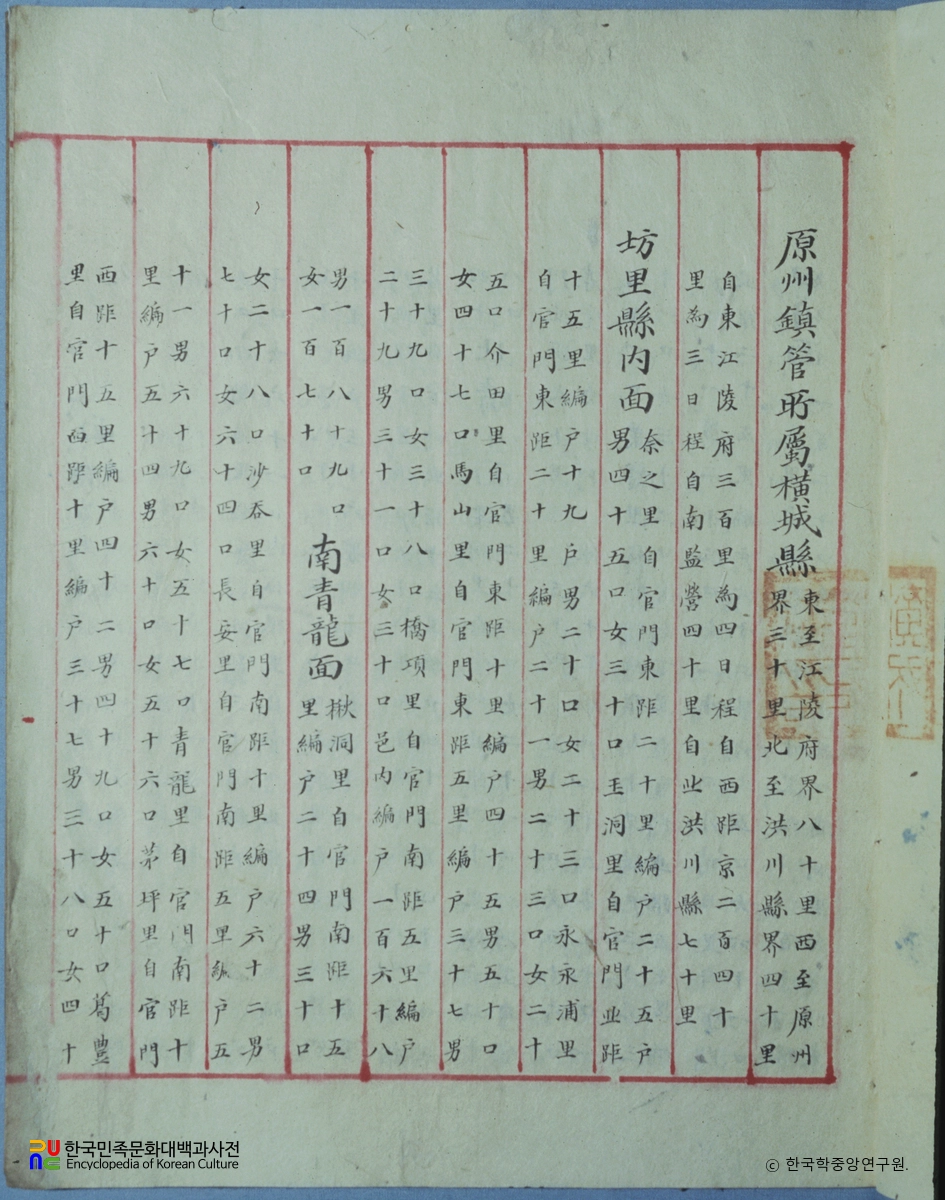 原州鎭管所屬橫城縣
東至江陵府界八十里西至原州
界三十里北至洪川縣界四十里
自東江陵府三百里為四日程自西距京二百四十
里為三日程自南監營四十里自北洪川縣七十里
坊里縣内面
奈之里自官門東距二十里編户二十五户
男四十五口女三十口玉洞里自官門北距
十五里編户十九户男二十口女二十三口永永浦里
自官門東距二十里編户二十一男二十三口女二十
五口介田里自官門東距十里編户四十五男五十口
女四十七口馬山里自官門東距五里編户三十七男
三十九口女三十八口橋項里自官門南距五里編户
二十九男三十一口女三十口邑内編户一百六十八
男一百八十九口
女一百七十口
南青龍面
楸洞里自官門南距十五
里編户二十四男三十口
女二十八口沙呑里自官門南距十里編户六十二男
七十口女六十四口長妄里自官門南距五里編户五
十一男六十九口女五十七口青龍里自官門南距十
里編户五十四男六十口女五十六口茅坪里自官門
西距十五里編户四十二男四十九口女五十口葛豊
里自官門西距十里編户三十七男三十八口女四十
한국민족문화대백과사전
Encyclopedia of Korean Culture
ⓒ 한국학중앙연구원.